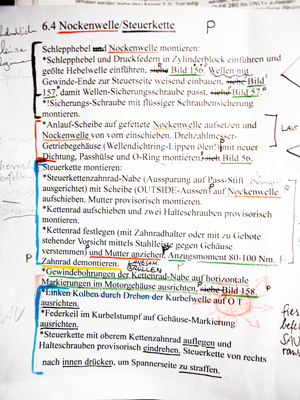 6.4 Nockenwelle/Steuerkette
P
Schlepphebel und Nockenwelle montieren:
*Schlepphebel und Druckfedern in Zylinderblock einführen und
geölte Hebelwelle einführen, siehe Bild 156. Wellen mit
Gewinde-Ende zur Steuerseite weisend einbauen, siehe Bild
157, damit Wellen-Sicherungsschraube passt. Bild 57.
*!Sicherungs-Schraube mit flüssiger Schraubensicherung
montieren.
*Anlauf-Scheibe auf gefettete Nockenwelle aufsetzen und
Nockenwelle von vorn einschieben. Drehzahlmesser-
Getriebegehäuse (Wellendichtring-Lippen ölen!) mit neuer
Dichtung, Passhülse und O-Ring montieren, sieh Bild 56.
Steuerkette montieren:
*Steuerkettenzahnrad-Nabe (Aussparung auf Pass-Stift
ausgerichtet) mit Scheibe (OUTSIDE-Aussen) auf Nockenwelle
aufschieben. Mutter provisorisch montieren.
*Kettenrad aufschieben und zwei Halteschrauben provisorisch
montieren.
*Kettenrad festlegen (mit Zahnradhalter oder mit zu Gebote
stehender Vorsicht mittels Stahlleiste gegen Gehäuse
verstemmen) und Mutter anziehen, Anzugsmoment 80-100 Nm.
Zahnrad demontieren.
*Gewindebohrungen der Kettenrad-Nabe auf horizontale
Markierungen im Motorgehäuse ausrichten, siehe Bild 158.
*Linken Kolben durch Drehen der Kurbelwelle auf O T
ausrichten.
*Federkeil im Kurbelstumpf auf Gehäuse-Markierung
ausrichten.
*Steuerkette mit oberem Kettenzahnrad auflegen und
Halteschrauben provisorisch eindrehen. Steuerkette von rechts
nach innen drücken, um Spannerseite zu straffen.